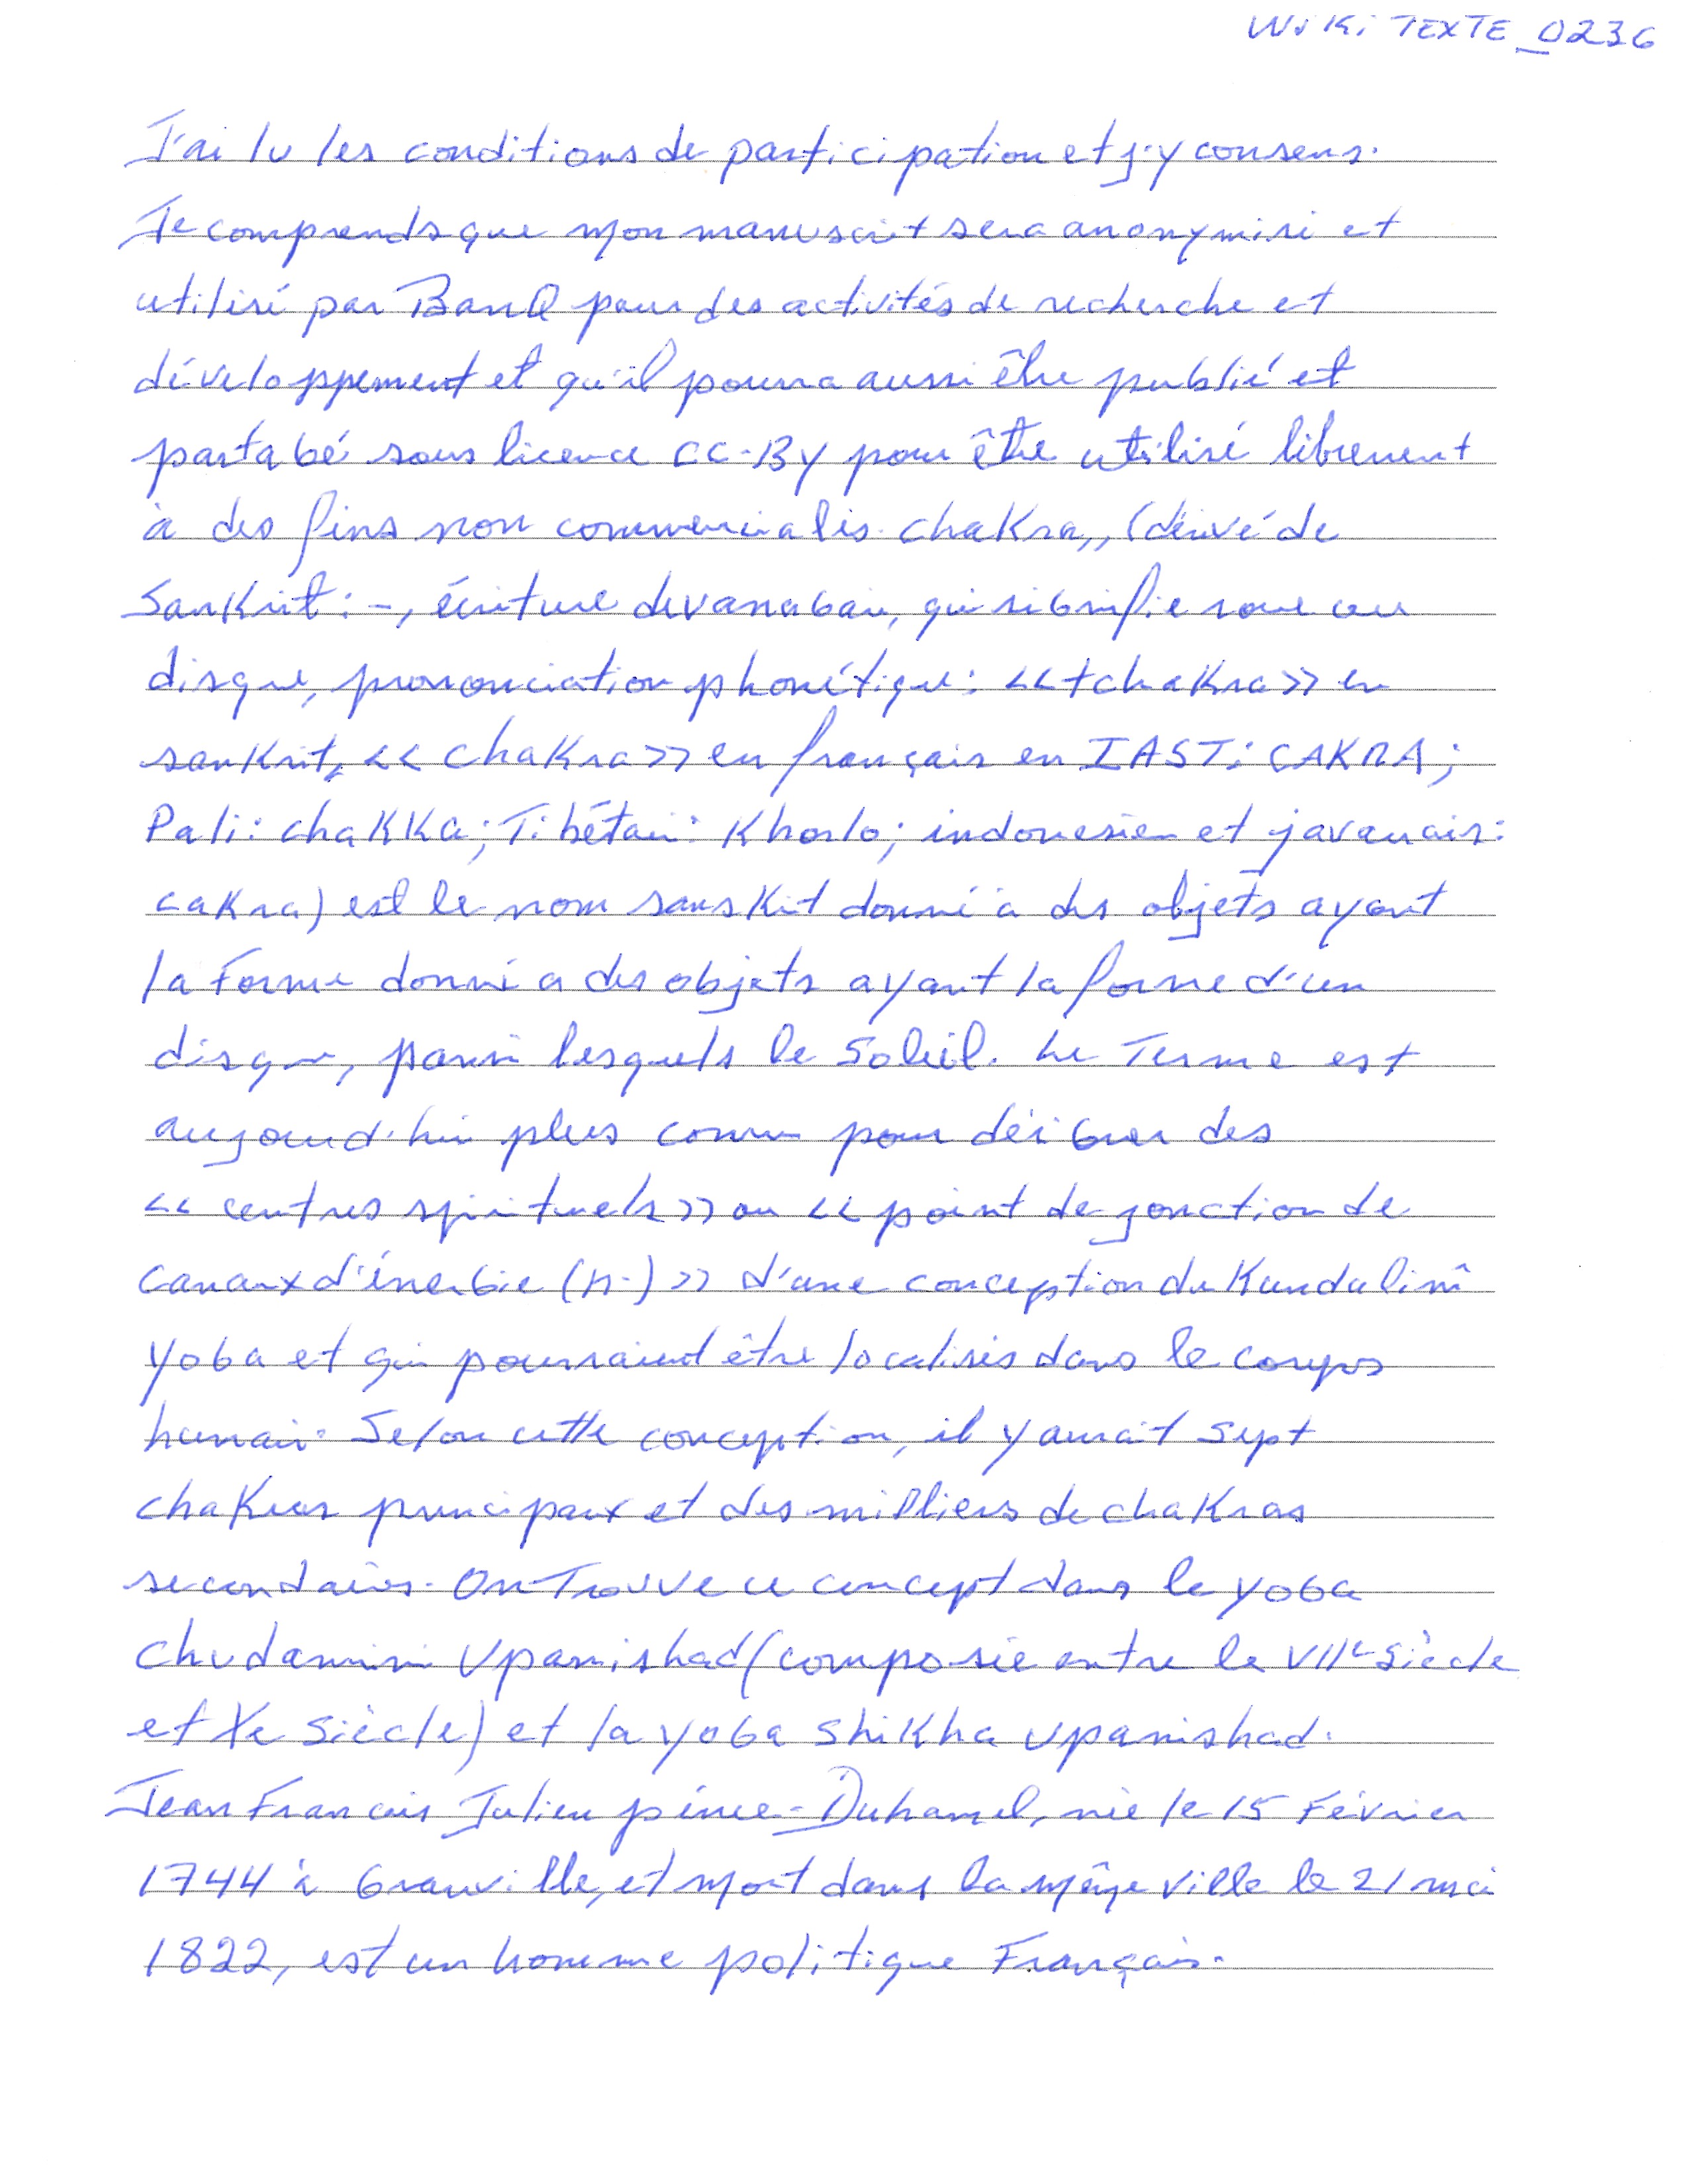 WiKi TEXTE_0236
J'ai lu les conditions de participation et j'y consens.
Je comprends que mon manuscrit sera anonymisé et
utilisé par BanQ pour des activités de recherche et
développement et qu'il pourra aussi être publié et
partagé sous licence CC-BY pour être utilisé librement
à des fins non commerciales. chakra,, (dérivé de
Sankrit : -, écriture devanagari, qui signifie roue ou
disque, prononciation phonétique : <<tchakra>> en
sankrit, << chakra>> en français en IAST : CAKRA ;
Pali : chakka ; Tibétain : Khorlo ; indonesien et javanais :
cakra) est le nom sanskit donné à des objets ayant
la Forme donné a des objets ayant la forme d'un
disque, parmi lesquels le Soleil. Le Terme est
aujourd'hui plus connu pour désigner des
<< centres spirituels>> ou << point de jonction de
canaux d'énergie (n.) >> d'une conception du Kundalinî
yoga et qui pourraient être localisés dans le corps
humain. Selon cette conception, il y aurait sept
chakras principaux et des milliers de chakras
secondaires. On Trouve ce concept dans le yoga
Chudamini Upanishad (composée entre le VIIe siècle
et Xe siècle) et la yoga Shikha upanishad.
Jean Francois Julien pinee-Duhamel, née le 15 Février
1744 à Granville, et mort dans la même ville le 21 mai
1822, est un homme politique Français.